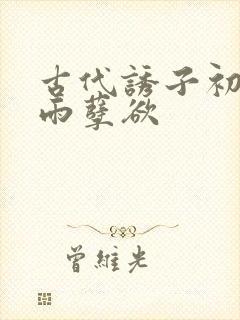 古代誘子初
雨孽欲
曾維光